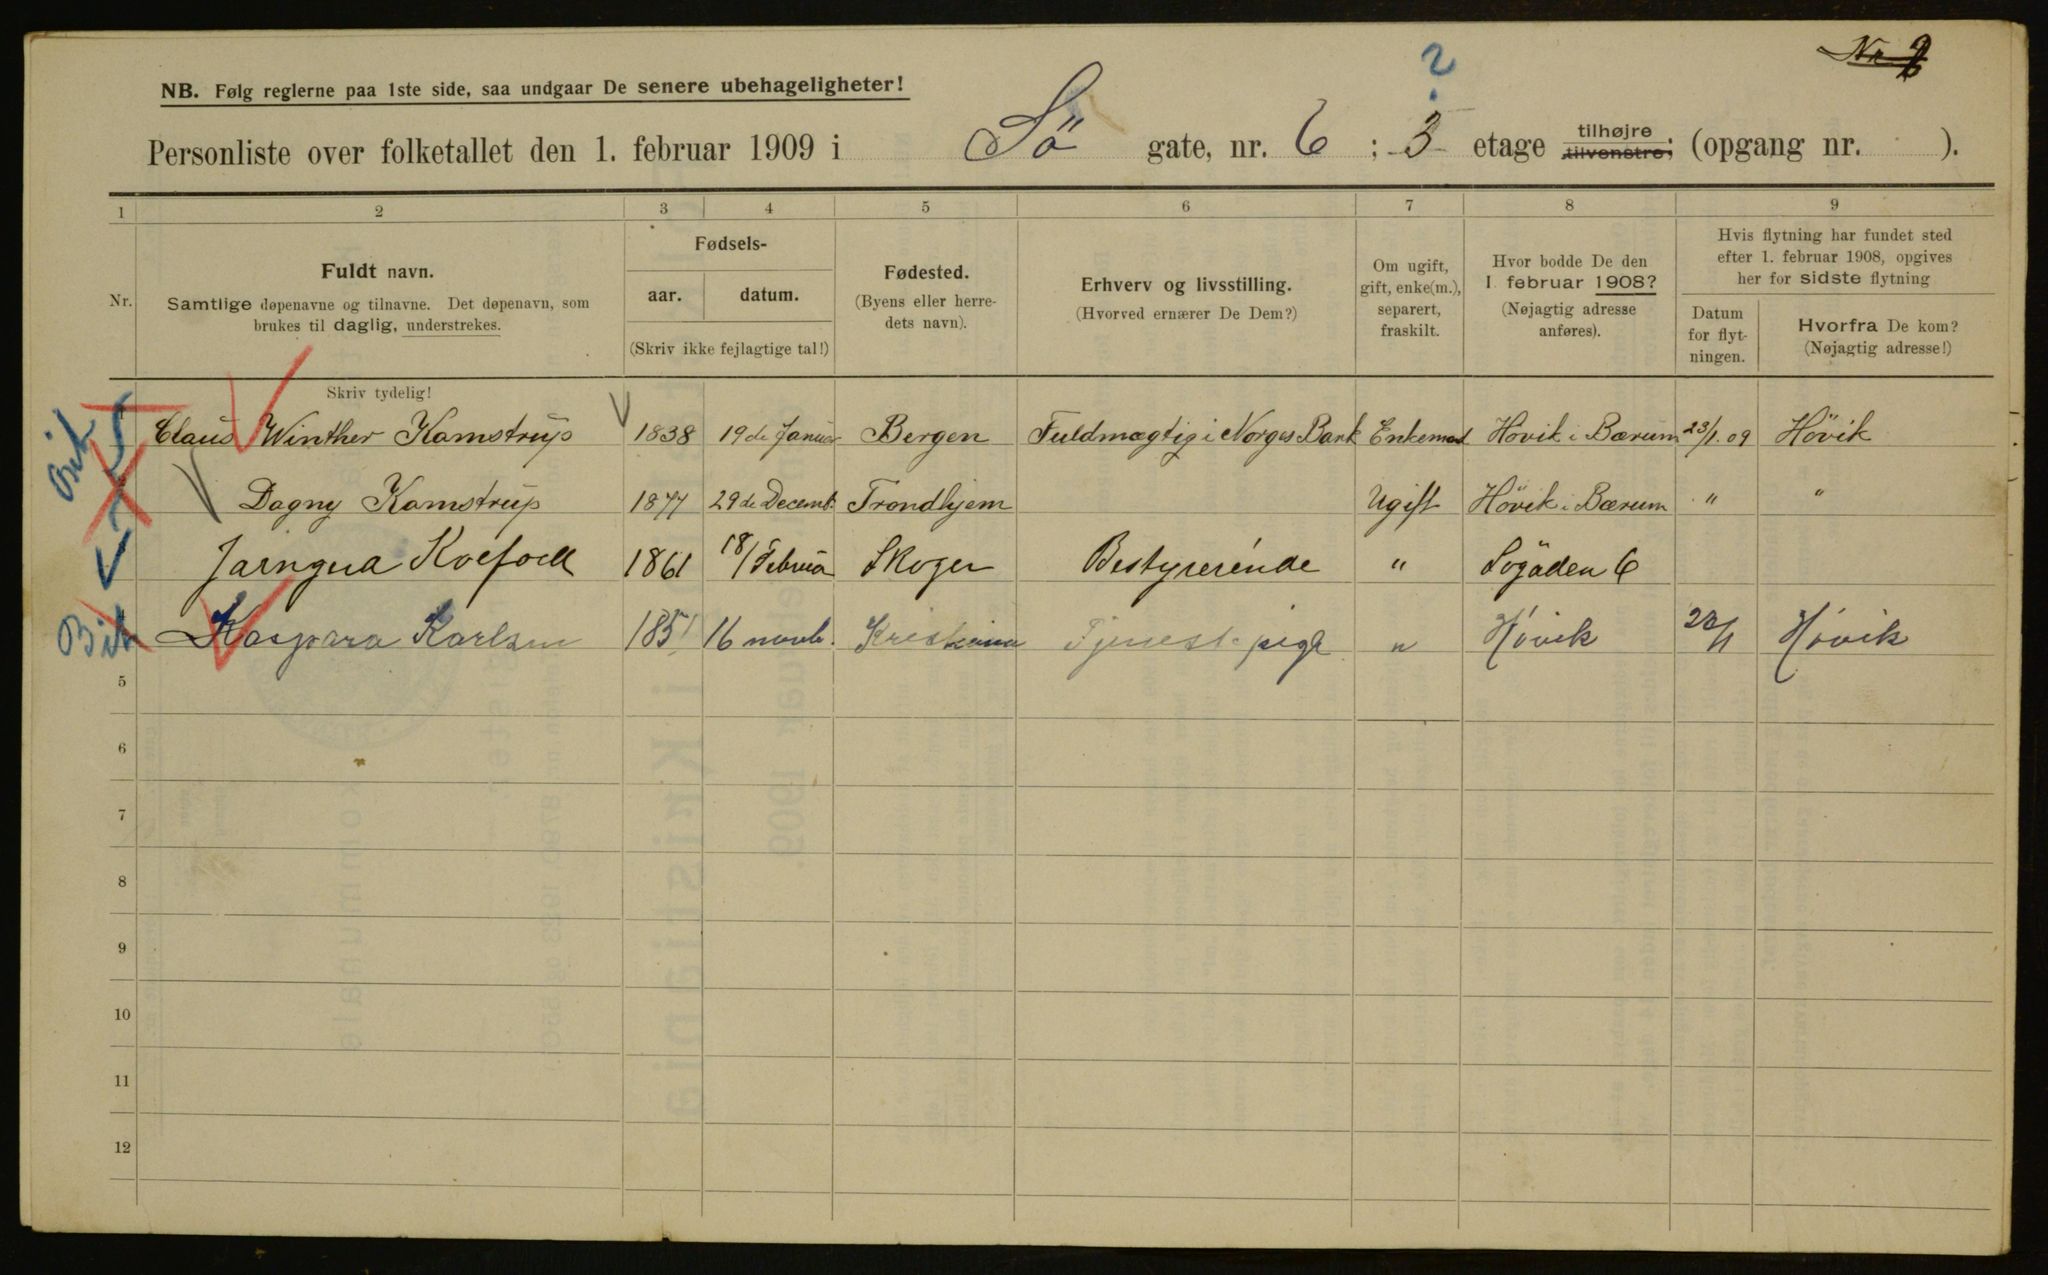 Nr.
2
NB. Følg reglerne paa 1ste side, saa undgaar De senere ubehageligheter!
Personliste over folketallet den 1. februar 1909 i Sö gate, nr. 6 ; 3 etage tilhøjre tilvenstre; (opgang nr. ).
1 2 3 4 5 6 7 8 9
Nr.
Fuldt navn.
Samtlige døpenavne og tilnavne. Det døpenavn, som
brukes til daglig, understrekes.
Fødsels-
aar. datum.
(Skriv ikke fejlagtige tal!)
Fødested.
(Byens eller herre-
dets navn).
Erhverv og livsstilling.
(Hvorved ernærer De Dem?)
Om ugift,
gift, enke(m.),
separert,
fraskilt.
Hvor bodde De den
1 februar 1908?
(Nøjagtig adresse
anføres).
Hvis flytning har fundet sted
efter 1. februar 1908, opgives
her for sidste flytning
Datum
for flyt-
ningen.
Hvorfra De kom?
(Nøjagtig adresse!)
Skriv tydelig!
Claus Winther Kamstrup 1838 19de Januar Bergen Fuldmægtig i Norges Bank Enkemand Hövik i Bærum 23/1. 09 Hövik
Dagny Kamstrup 1877 29de Decemb. Trondhjem Ugift Hövik i Bærum " "
Koefoed 1861 18/ Februa Skoger Bestyrerinde " Sögaden 6
Kaspara Karlsen 1851 16 novb. Kristiania Tjenestepige " Hövik 23/1 Hövik
Bik
Bik
5
6
7
8
9
10
11
12